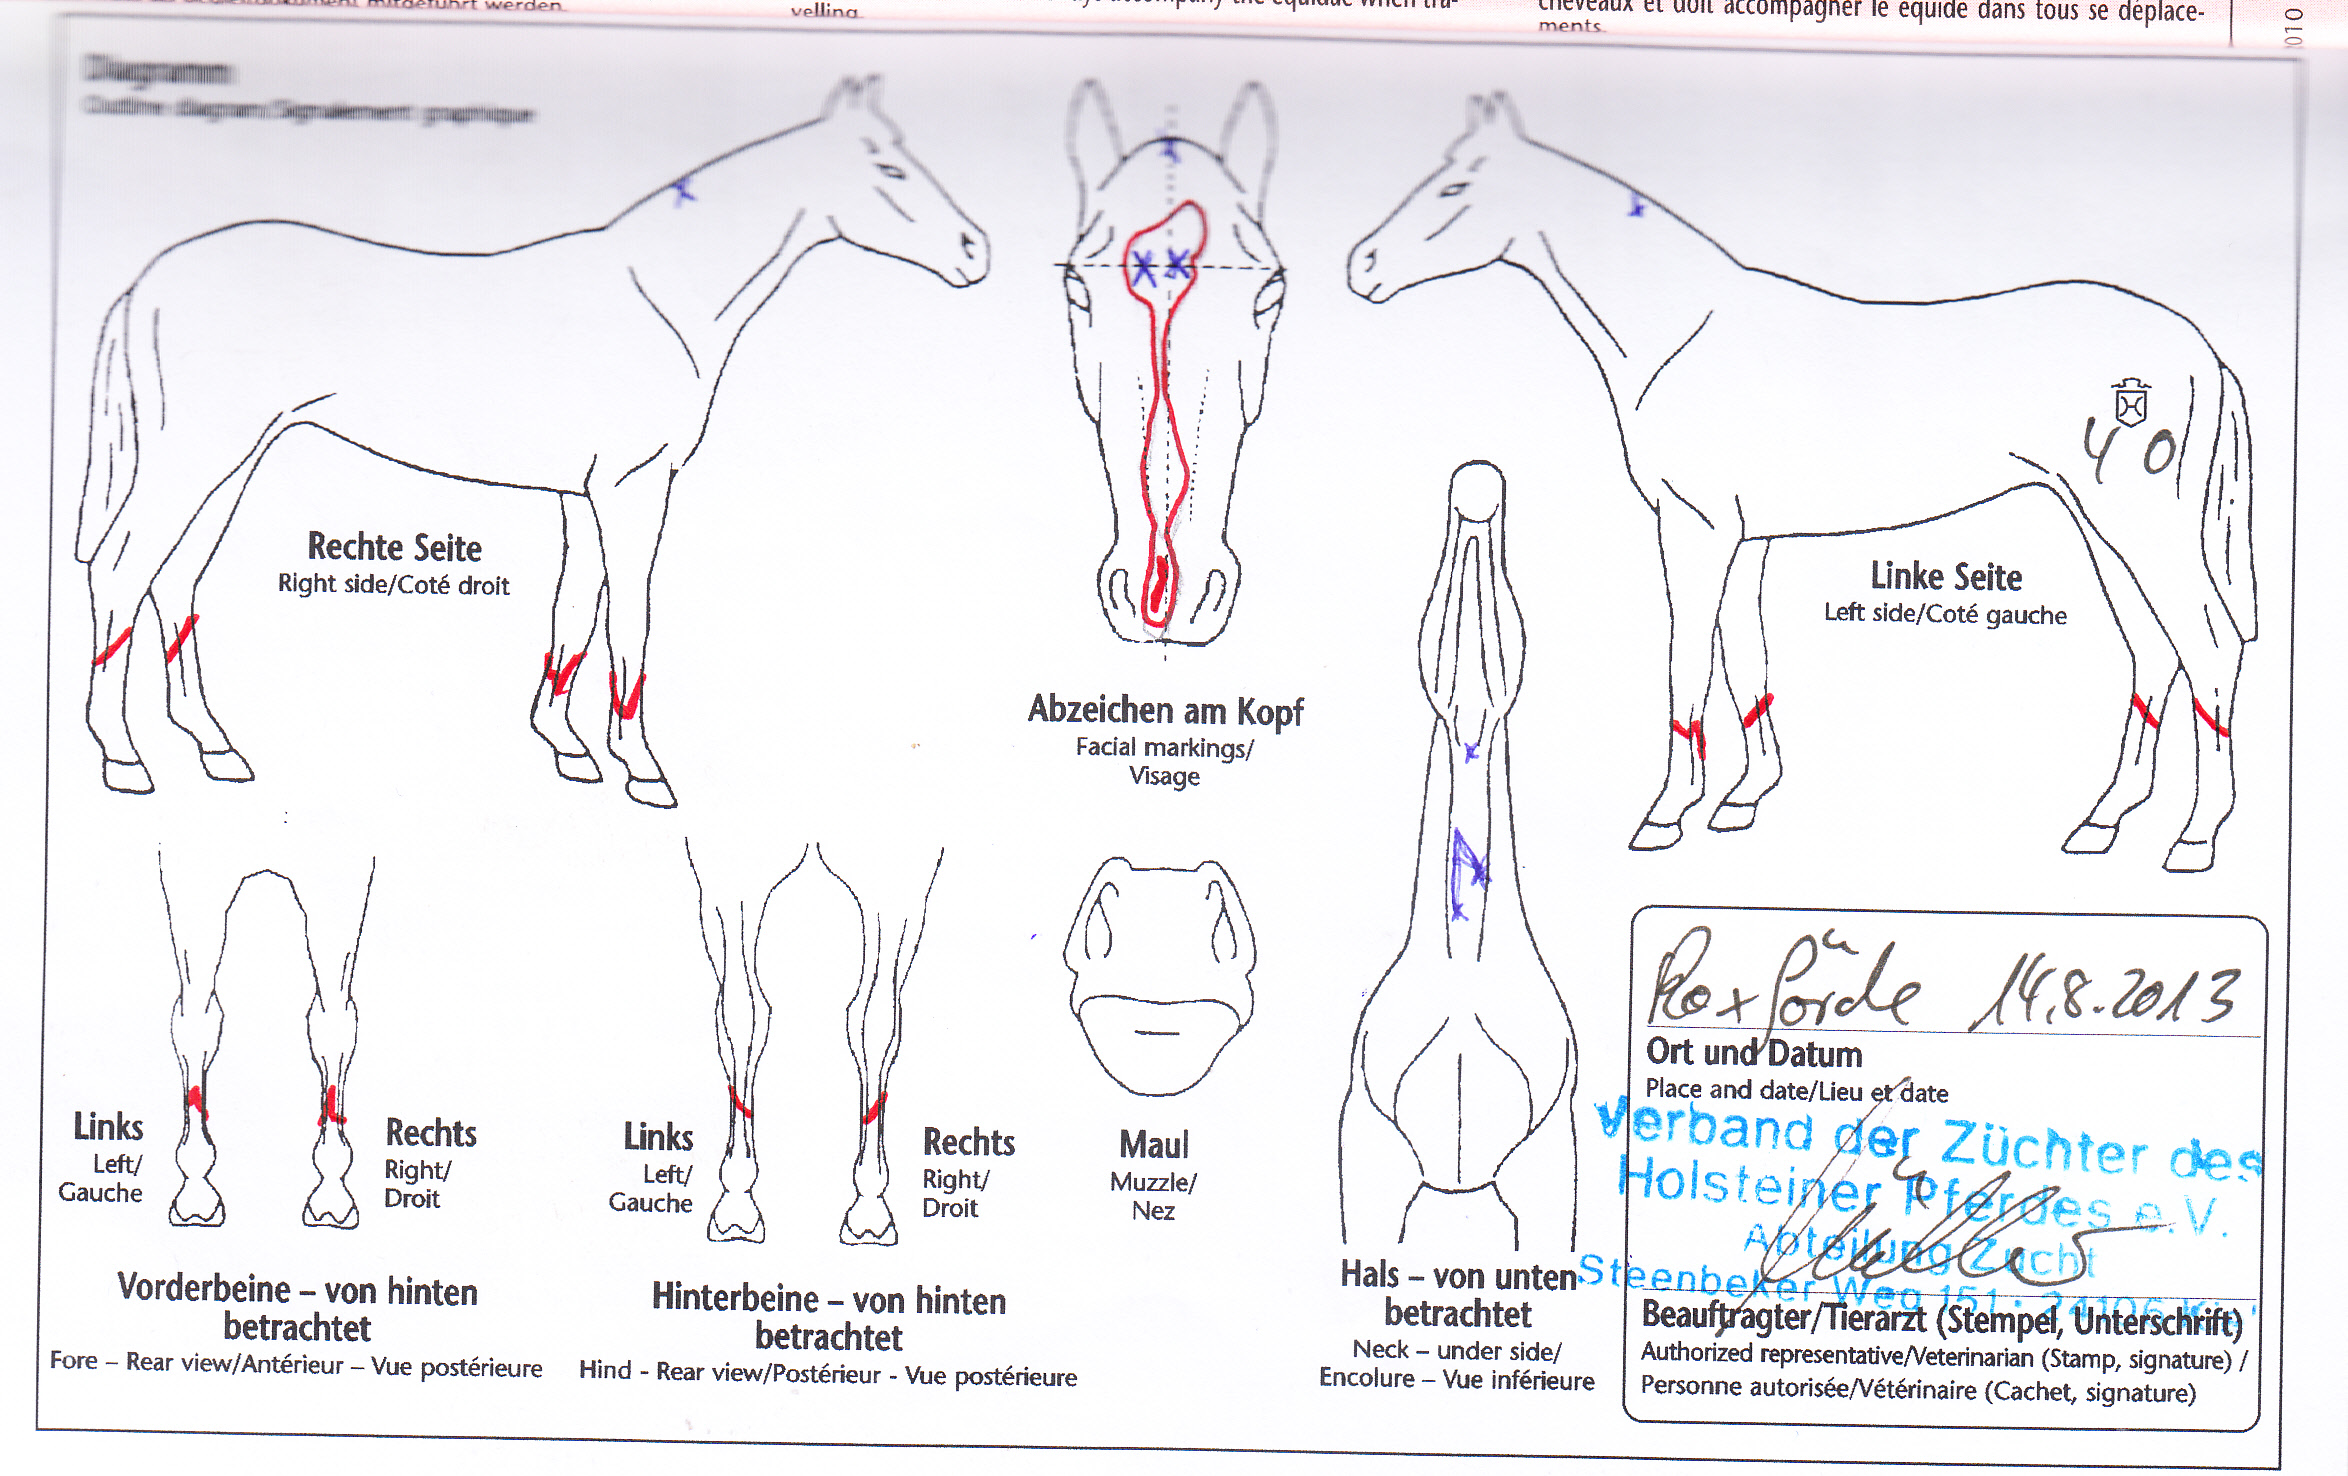 mitgeführt werden.
velling.
accompany the equidae when tra-
chevaux et doit accompagner le équidé dans tous se déplace-
ments.
010
Diagramm
Outline diagram/Signalement graphique
Rechte Seite
Right side/Coté droit
Abzeichen am Kopf
Facial markings/
Visage
Linke Seite
Left side/Coté gauche
4 0
Links
Left/
Gauche
Rechts
Right/
Droit
Vorderbeine – von hinten
betrachtet
Fore – Rear view/Antérieur – Vue postérieure
Links
Left/
Gauche
Rechts
Right/
Droit
Hinterbeine – von hinten
betrachtet
Hind - Rear view/Postérieur - Vue postérieure
Maul
Muzzle/
Nez
Hals – von unten
betrachtet
Neck – under side/
Encolure – Vue inférieure
14.8.2013
Ort und Datum
Place and date/Lieu et date
Verband der Züchter des
Holsteiner Pferdes e.V.
Abteilung Zucht
Steenbeker Weg 151 · 24106 Kiel
Beauftragter/Tierarzt (Stempel, Unterschrift)
Authorized representative/Veterinarian (Stamp, signature) /
Personne autorisée/Vétérinaire (Cachet, signature)